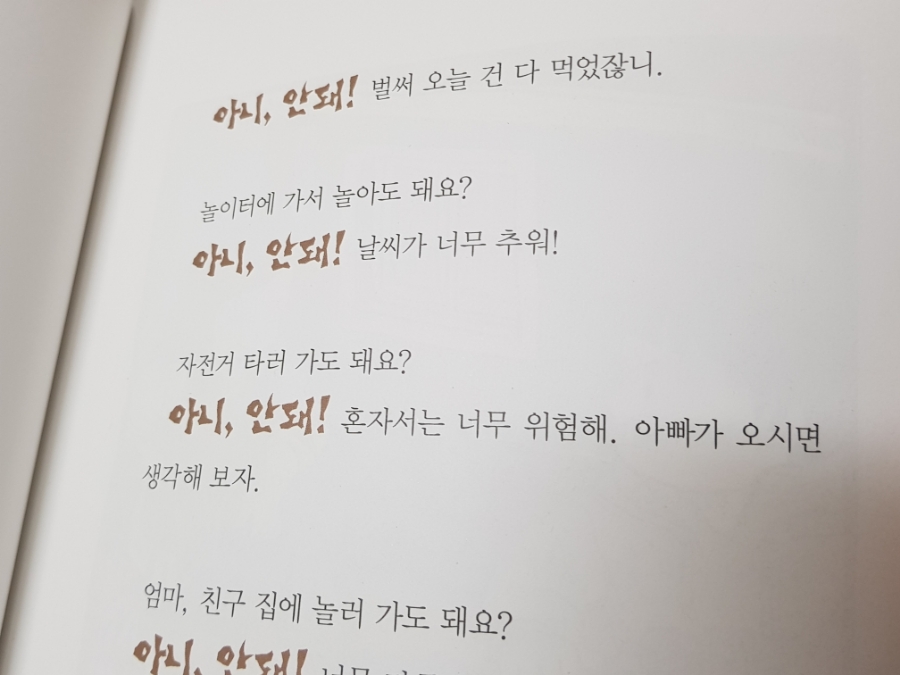 아니, 안돼! 벌써 오늘 건 다 먹었잖니.
놀이터에 가서 놀아도 돼요?
아니, 안돼! 날씨가 너무 추워!
자전거 타러 가도 돼요?
아니, 안돼! 혼자서는 너무 위험해. 아빠가 오시면
생각해 보자.
엄마, 친구 집에 놀러 가도 돼요?
아니, 안돼! 너무